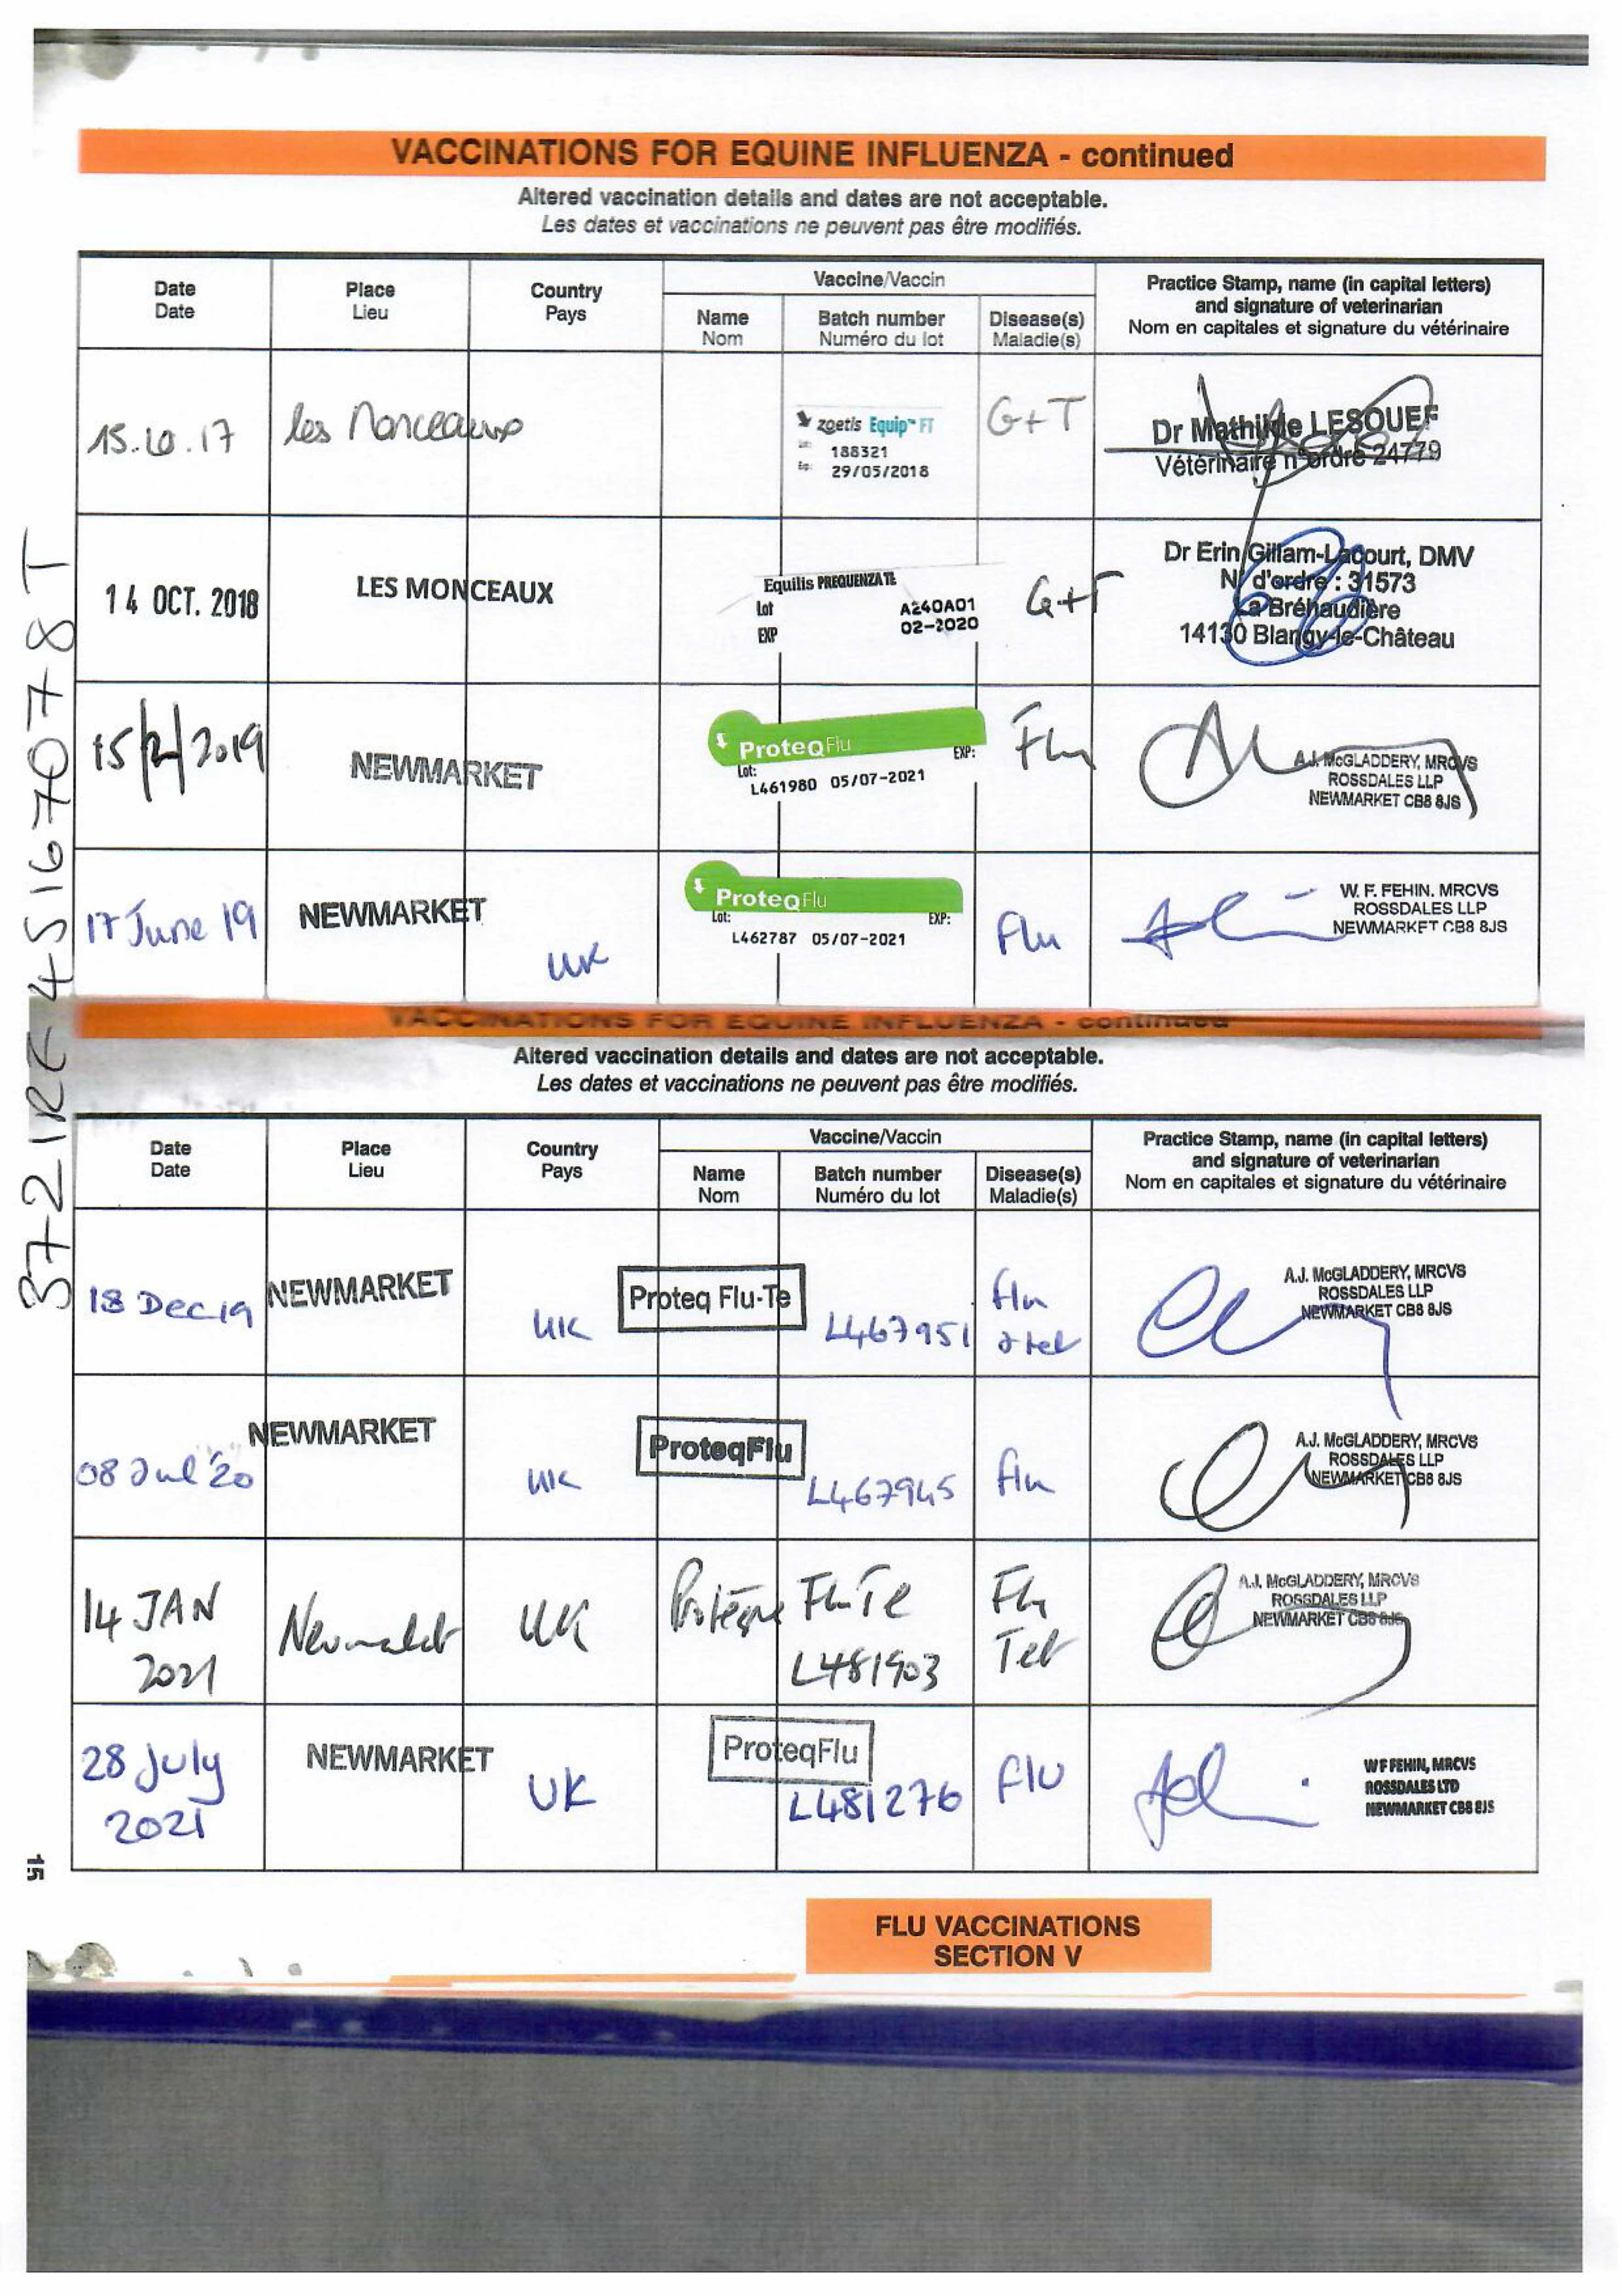 VACCINATIONS FOR EQUINE INFLUENZA - continued
Altered vaccination details and dates are not acceptable.
Les dates et vaccinations ne peuvent pas être modifiés.
Date
Date
Place
Lieu
Country
Pays
Vaccine/Vaccin
Name
Nom
Batch number
Numéro du lot
Disease(s)
Maladie(s)
Practice Stamp, name (in capital letters)
and signature of veterinarian
Nom en capitales et signature du vétérinaire
15.10.17
les Monceaux
zoetis Equip™ FT
188321
Exp: 29/05/2018
G+T
Dr Mathilde LESOUEF
Vétérinaire n°ordre 24779
14 OCT. 2018
LES MONCEAUX
Equilis PREQUENZA TE
Lot A240A01
EXP 02-2020
G+T
Dr Erin Gillam-Lacourt, DMV
N° d'ordre : 31573
La Bréhaudière
14130 Blangy-le-Château
15/2/2019
NEWMARKET
ProteqFlu
Lot: EXP:
L461980 05/07-2021
Flu
A.J. McGLADDERY, MRCVS
ROSSDALES LLP
NEWMARKET CB8 8JS
17 June 19
NEWMARKET
UK
ProteqFlu
Lot: EXP:
L462787 05/07-2021
Flu
W. F. FEHIN. MRCVS
ROSSDALES LLP
NEWMARKET CB8 8JS
VACCINATIONS FOR EQUINE INFLUENZA - continued
Altered vaccination details and dates are not acceptable.
Les dates et vaccinations ne peuvent pas être modifiés.
Date
Date
Place
Lieu
Country
Pays
Vaccine/Vaccin
Name
Nom
Batch number
Numéro du lot
Disease(s)
Maladie(s)
Practice Stamp, name (in capital letters)
and signature of veterinarian
Nom en capitales et signature du vétérinaire
18 Dec 19
NEWMARKET
UK
Proteq Flu-Te
L467951
flu
& tet
A.J. McGLADDERY, MRCVS
ROSSDALES LLP
NEWMARKET CB8 8JS
08 Jul '20
NEWMARKET
UK
ProteqFlu
L467945
flu
A.J. McGLADDERY, MRCVS
ROSSDALES LLP
NEWMARKET CB8 8JS
14 JAN
2021
Newmarket
UK
Proteq Flu Te
L481903
Flu
Tet
A.J. McGLADDERY, MRCVS
ROSSDALES LLP
NEWMARKET CB8 8JS
28 July
2021
NEWMARKET
UK
ProteqFlu
L481276
Flu
W F FEHIN, MRCVS
ROSSDALES LTD
NEWMARKET CB8 8JS
372IRE45167078T
15
FLU VACCINATIONS
SECTION V